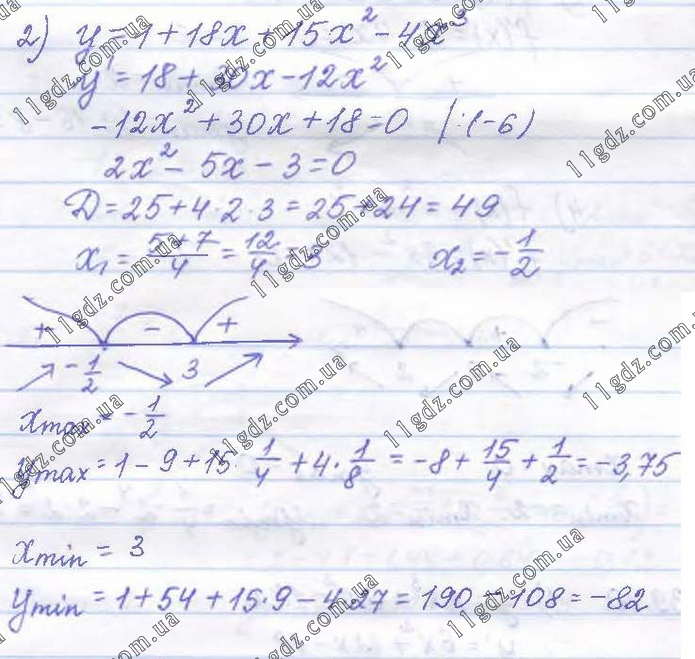 2) y = 1 + 18x + 15x² - 4x³
y' = 18 + 30x - 12x²
-12x² + 30x + 18 = 0 |:(-6)
2x² - 5x - 3 = 0
D = 25 + 4·2·3 = 25 + 24 = 49
x₁ = (5+7)/4 = 12/4 = 3 x₂ = -1/2
+ - +
-1/2 3
xmax = -1/2
ymax = 1 - 9 + 15·1/4 + 4·1/8 = -8 + 15/4 + 1/2 = -3,75
xmin = 3
ymin = 1 + 54 + 15·9 - 4·27 = 190 - 108 = -82
11gdz.com.ua